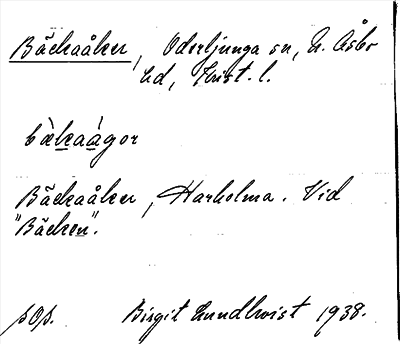 Bäckaåker, Oderljunga sn, N. Åsbo
hd, Krist. l.
bæ̀kaágor
Bäckaåker, Harholma. Vid
"Bäcken".
sOp. Birgit Lundkvist 1938.